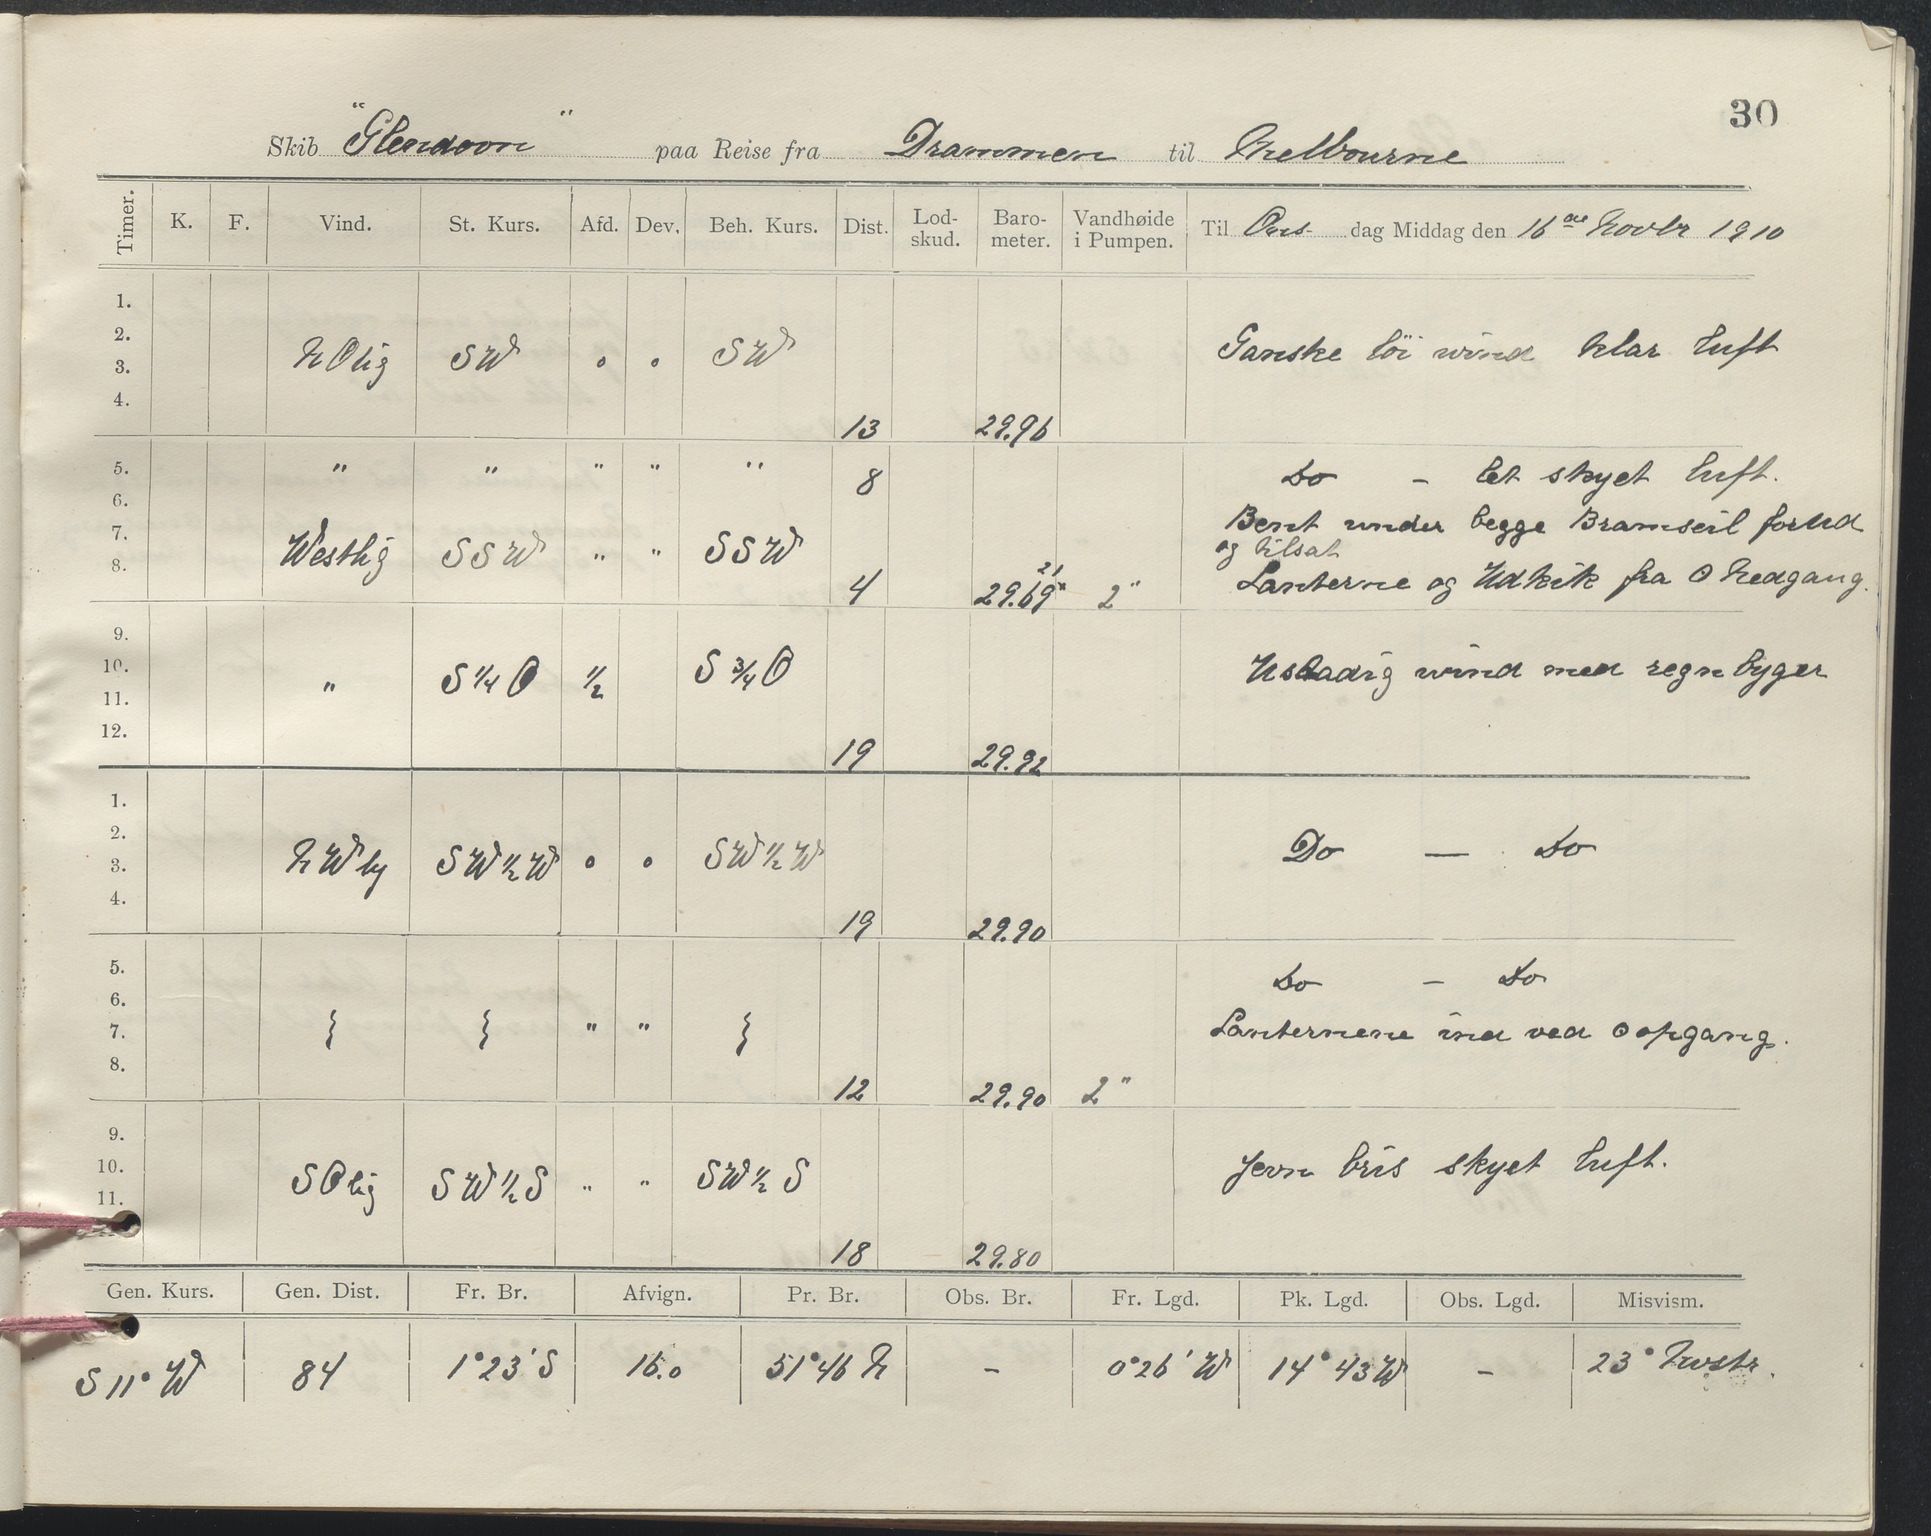 30
Skib "Glendoon" paa Reise fra Drammen til Melbourne
Timer. K. F. Vind. St. Kurs. Afd. Dev. Beh. Kurs. Dist. Lod-skud. Baro-meter. Vandhøide i Pumpen. Til Ons dag Middag den 16de Novbr 1910
1.
2.
3. NOlig SW o o SW Ganske löi wind klar luft
4. 13 29.96
5. " " " " " 8 Do - let skyet luft.
6. Bent under begge Bramseil forud
7. Westlig SSW " " SSW og tilsat
8. 4 29.69 21" 2" Lanterne og Udkik fra O Nedgang.
9.
10. " S 1/4 O 1/2 S 3/4 O Ustadig wind med regn byger
11.
12. 19 29.92
1.
2.
3. NWly SW 1/2 W o o SW 1/2 W Do — Do
4. 19 29.90
5. Do - Do
6.
7. } } " " } Lanternene ind ved O opgang.
8. 12 29.90 2"
9.
10. SOlig SW 1/2 S " " SW 1/2 S Jevn bris skyet luft.
11.
18 29.80
Gen. Kurs. Gen. Dist. Fr. Br. Afvign. Pr. Br. Obs. Br. Fr. Lgd. Pk. Lgd. Obs. Lgd. Misvism.
S 11° W 84 1°23' S 16.0 51°46 N - 0°26' W 14°43 W - 23° Nwstr.